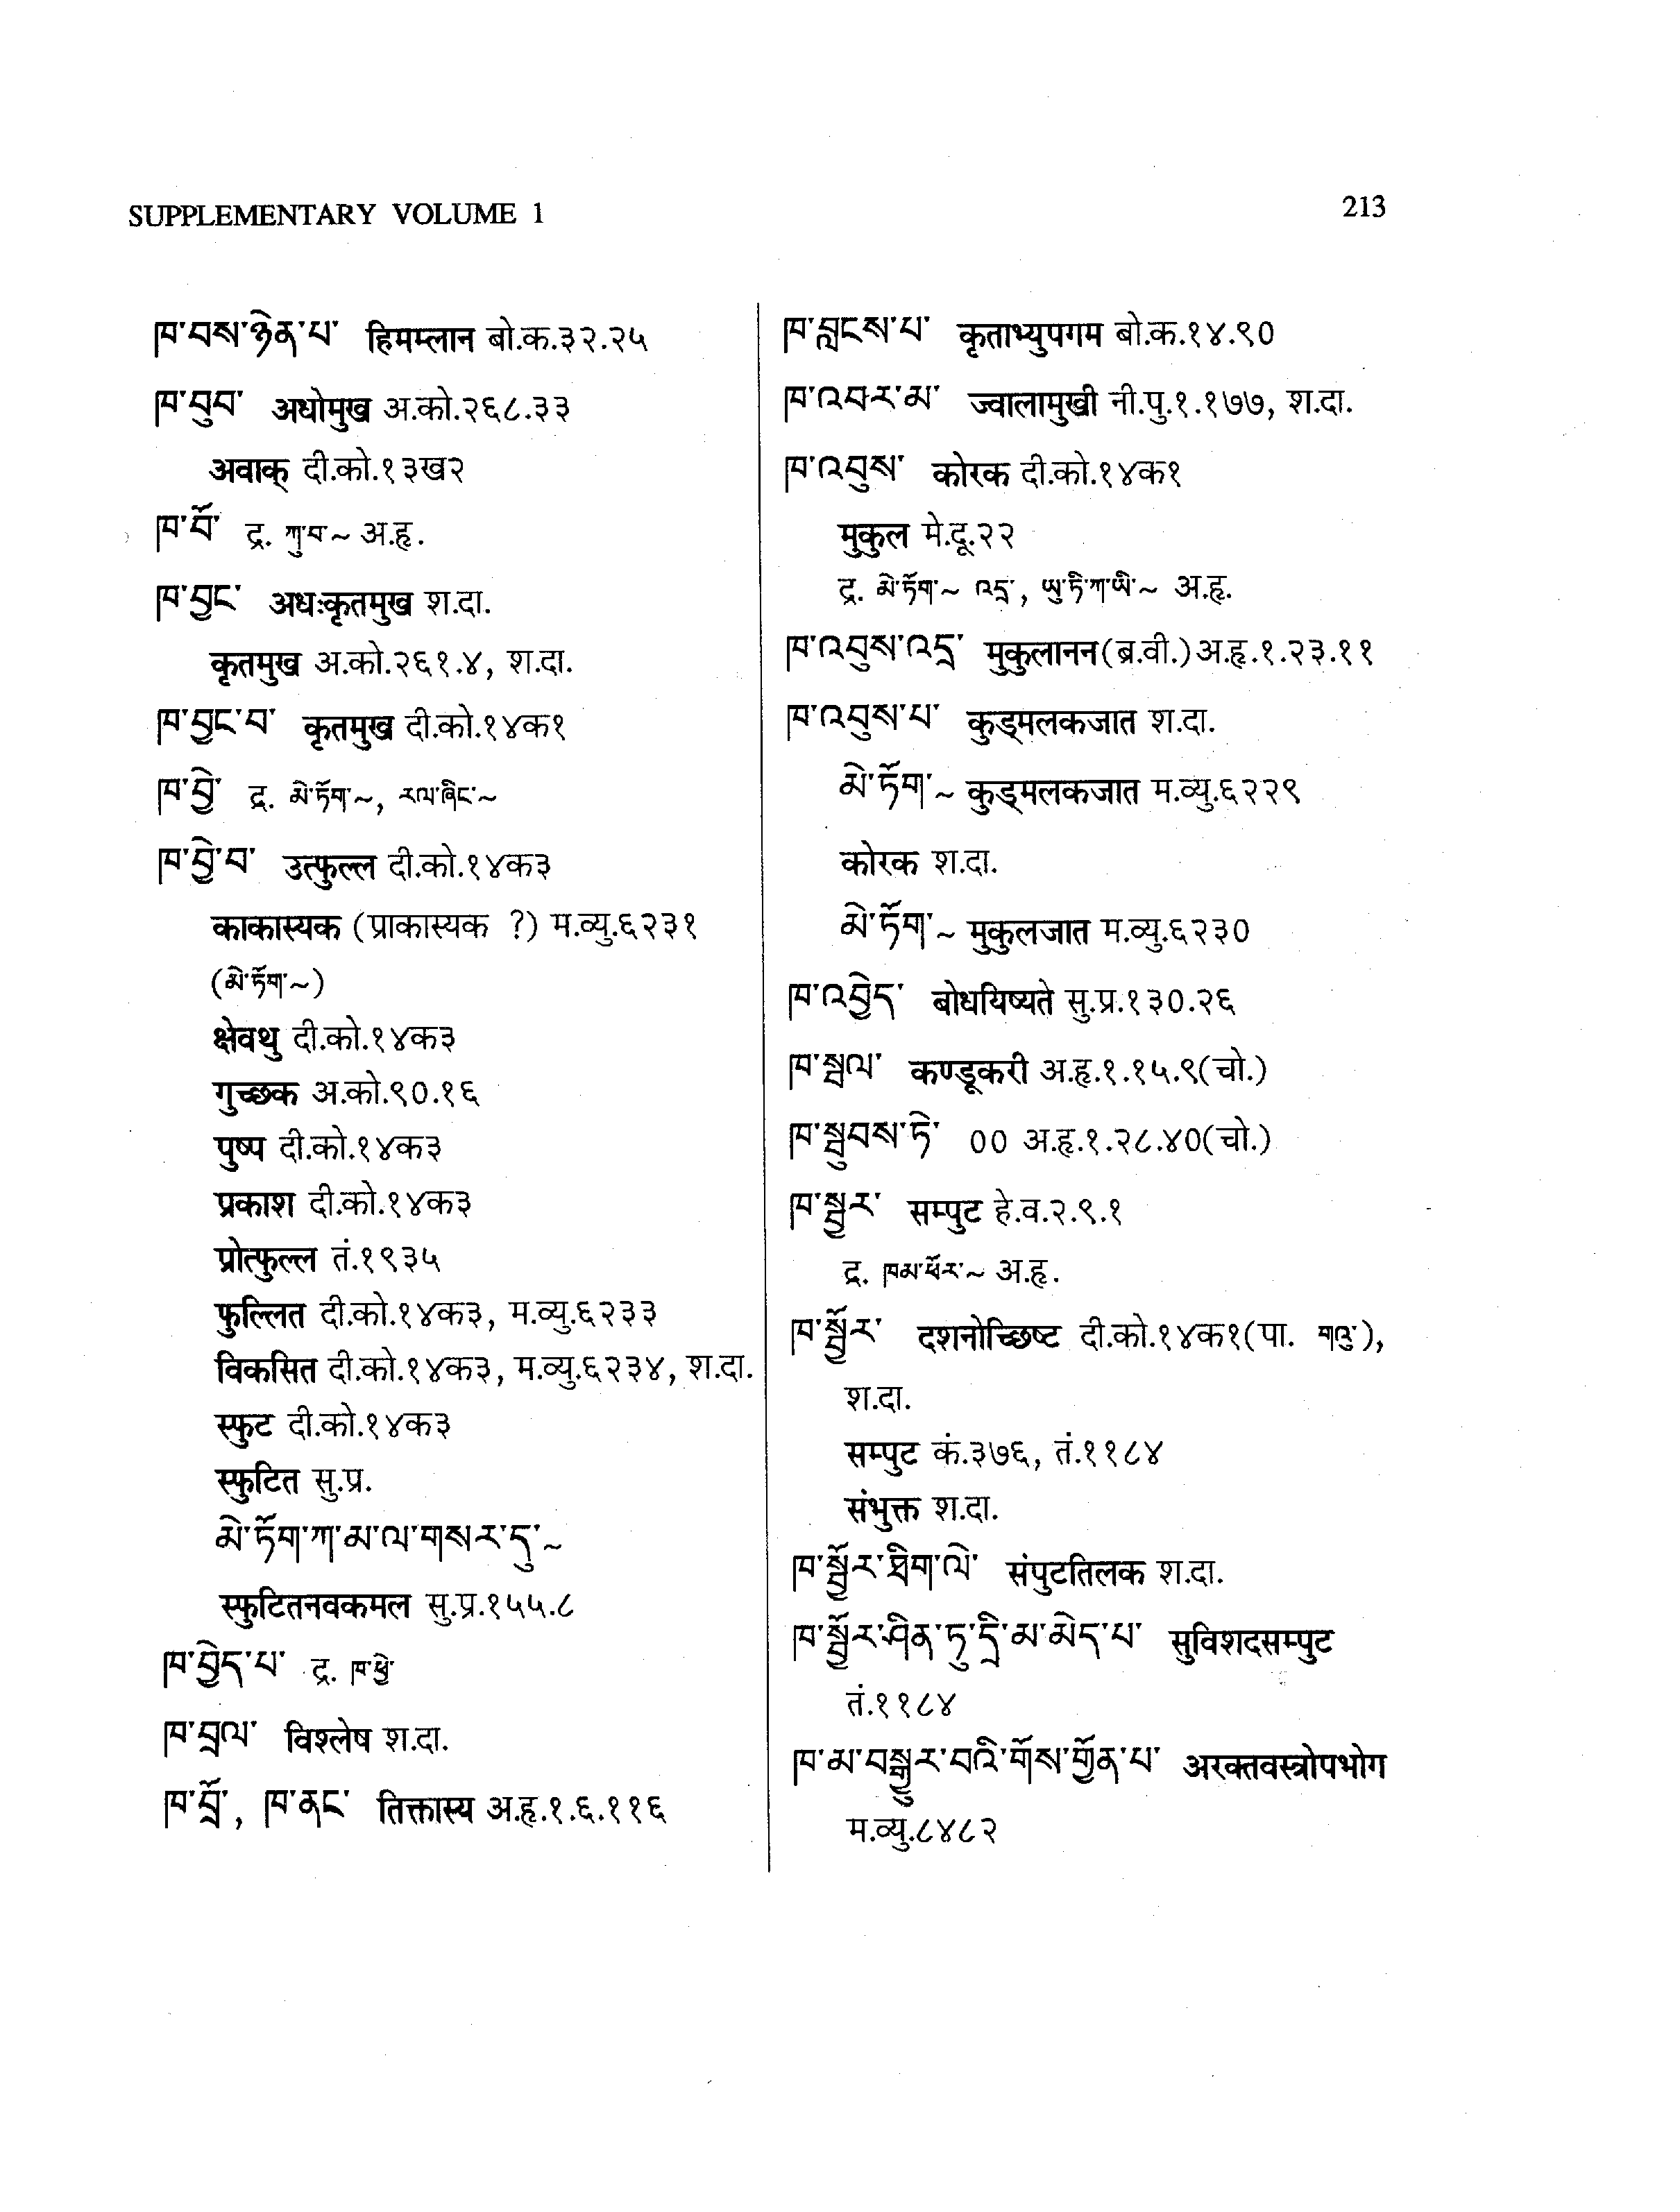 SUPPLEMENTARY VOLUME 1
213
ཁ་བས་ཉེན་པ་ हिमम्लान बो.क.३२.२५
ཁ་བུབ་ अधोमुख अ.को.२६८.३३
अवाक् दी.को.१३ख२
ཁ་བོ་ द्र. ཀུ་བ་~ अ.हृ.
ཁ་བྱང་ अधःकृतमुख श.दा.
कृतमुख अ.को.२६१.४, श.दा.
ཁ་བྱང་བ་ कृतमुख दी.को.१४क१
ཁ་བྱེ་ द्र. མེ་ཏོག་~, རལ་ཞིང་~
ཁ་བྱེ་བ་ उत्फुल्ल दी.को.१४क३
काकास्यक (प्राकास्यक ?) म.व्यु.६२३१
(མེ་ཏོག་~)
क्षेवथु दी.को.१४क३
गुच्छक अ.को.९०.१६
पुष्प दी.को.१४क३
प्रकाश दी.को.१४क३
प्रोत्फुल्ल तं.१९३५
फुल्लित दी.को.१४क३, म.व्यु.६२३३
विकसित दी.को.१४क३, म.व्यु.६२३४, श.दा.
स्फुट दी.को.१४क३
स्फुटित सु.प्र.
མེ་ཏོག་ཀ་མ་ལ་གསར་དུ་~
स्फुटितनवकमल सु.प्र.१५५.८
ཁ་བྱེད་པ་ द्र. ཁ་ཕྱེ་
ཁ་བྲལ་ विश्लेष श.दा.
ཁ་བྲོ་, ཁ་ནང་ तिक्तास्य अ.हृ.१.६.११६
ཁ་བླངས་པ་ कृताभ्युपगम बो.क.१४.९०
ཁ་འབར་མ་ ज्वालामुखी नी.पु.१.१७७, श.दा.
ཁ་འབུས་ कोरक दी.को.१४क१
मुकुल मे.दू.२२
द्र. མེ་ཏོག་~ འདྲ་, ཡུ་ཏི་ཀ་ཡི་~ अ.हृ.
ཁ་འབུས་འདྲ་ मुकुलानन(ब्र.वी.)अ.हृ.१.२३.११
ཁ་འབུས་པ་ कुड्मलकजात श.दा.
མེ་ཏོག་~ कुड्मलकजात म.व्यु.६२२९
कोरक श.दा.
མེ་ཏོག་~ मुकुलजात म.व्यु.६२३०
ཁ་འབྱེད་ बोधयिष्यते सु.प्र.१३०.२६
ཁ་སྦལ་ कण्डूकरी अ.हृ.१.१५.९(चो.)
ཁ་སྦུབས་ཏེ་ ०० अ.हृ.१.२८.४०(चो.)
ཁ་སྦྱར་ सम्पुट हे.व.२.९.१
द्र. ཁམ་ཕོར་~ अ.हृ.
ཁ་སྦྱོར་ दशनोच्छिष्ट दी.को.१४क१(पा. གཞུ་),
श.दा.
सम्पुट कं.३७६, तं.११८४
संभुक्त श.दा.
ཁ་སྦྱོར་ཐིག་ལེ་ संपुटतिलक श.दा.
ཁ་སྦྱོར་ཤིན་ཏུ་དྲི་མ་མེད་པ་ सुविशदसम्पुट
तं.११८४
ཁ་མ་བསྒྱུར་བའི་གོས་གྱོན་པ་ अरक्तवस्त्रोपभोग
म.व्यु.८४८२